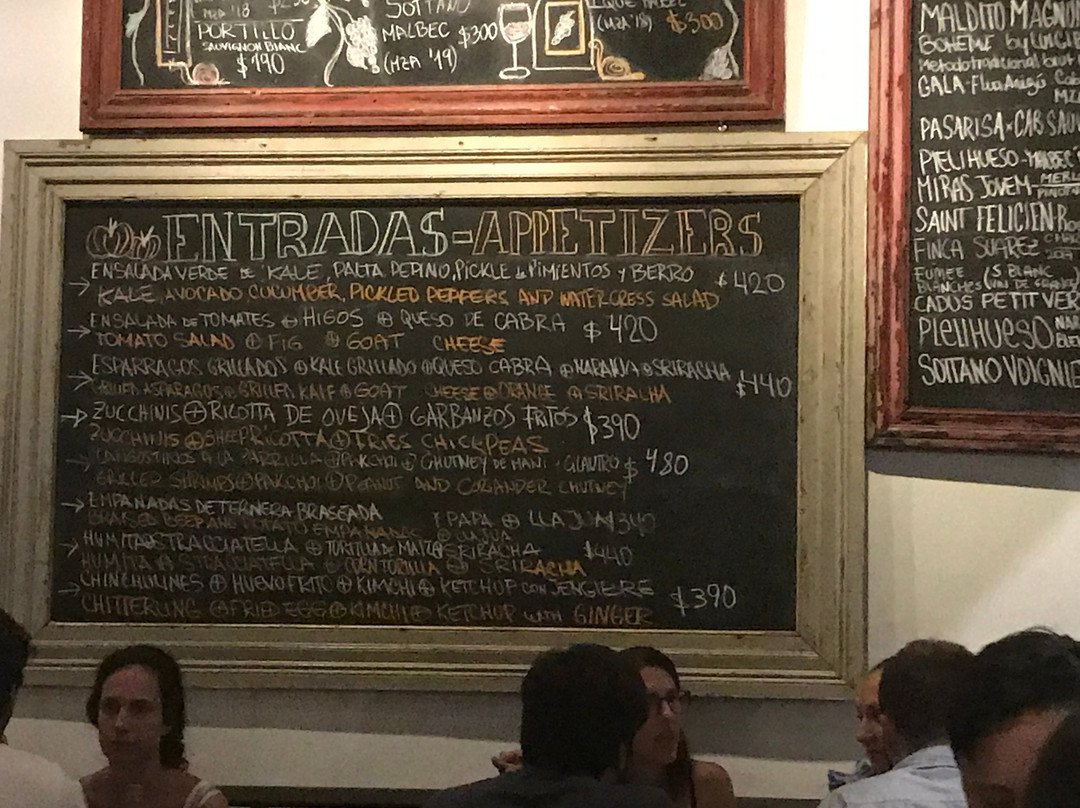 MZA '18
PORTILLO
SAUVIGNON BLANC
$190
SOTTANO
MALBEC $300
(MZA '19)
(MZA '18) $300
MALDITO
BOHEME by LUIGI
GALA
PASARISA - CAB SAUV
PIELIHUESO - MALBEC
MIRAS JOVEM - MERL
SAINT FELICIEN
FINCA SUAREZ
FUMEE (S BLANC
CADUS PETIT VER
PIELIHUESO
SOTTANO VOIGNIE
ENTRADAS = APPETIZERS
ENSALADA VERDE DE KALE, PALTA PEPINO, PICKLE de PIMIENTOS Y BERRO $420
KALE, AVOCADO CUCUMBER, PICKLED PEPPERS AND WATERCRESS SALAD
ENSALADA DE TOMATES ⊕ HIGOS ⊕ QUESO DE CABRA $420
TOMATO SALAD ⊕ FIG ⊕ GOAT CHEESE
ESPARRAGOS GRILLADOS ⊕ KALE GRILLADO ⊕ QUESO CABRA ⊕ NARANJA ⊕ SRIRACHA $440
GRILLED ASPARAGOS ⊕ GRILLED KALE ⊕ GOAT CHEESE ⊕ ORANGE ⊕ SRIRACHA
ZUCCHINIS ⊕ RICOTTA DE OVEJA ⊕ GARBANZOS FRITOS $390
ZUCCHINIS ⊕ SHEEP RICOTTA ⊕ FRIES CHICKPEAS
LANGOSTINOS A LA PARRILLA ⊕ PAKCHOI ⊕ CHUTNEY DE MANI Y CILANTRO $480
GRILLED SHRIMPS ⊕ PAKCHOI ⊕ PEANUT AND CORIANDER CHUTNEY
EMPANADAS DE TERNERA BRASEADA Y PAPA ⊕ LLAJUA $340
BRAISED BEEF AND POTATO EMPANADAS ⊕ LLAJUA
HUMITA ⊕ STRACCIATELLA ⊕ TORTILLA DE MAIZ ⊕ SRIRACHA $440
HUMITA ⊕ STRACCIATELLA ⊕ CORN TORTILLA ⊕ SRIRACHA
CHINCHULINES ⊕ HUEVO FRITO ⊕ KIMCHI ⊕ KETCHUP CON JENGIBRE $390
CHITTERLING ⊕ FRIED EGG ⊕ KIMCHI ⊕ KETCHUP with GINGER